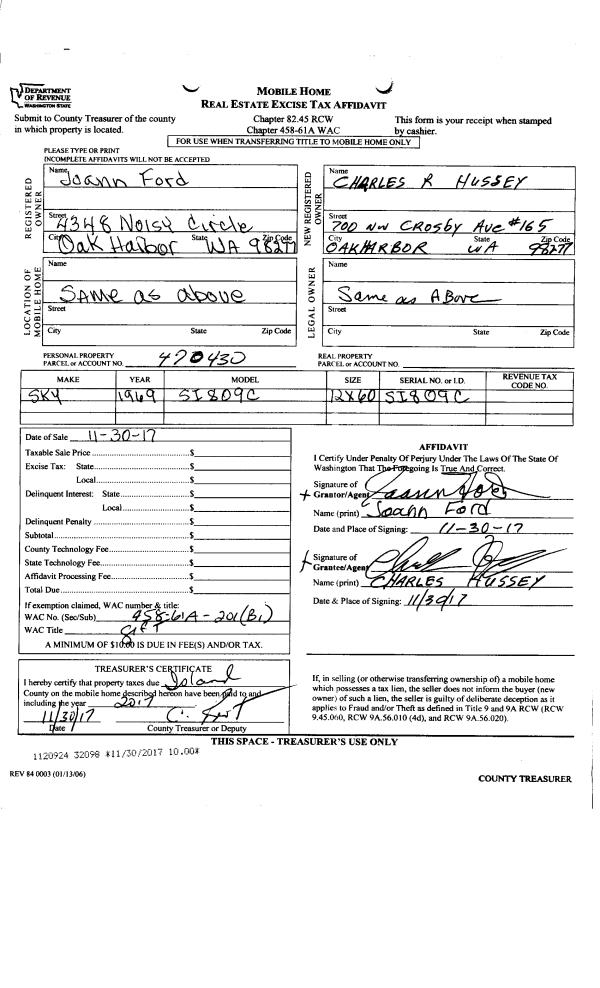 DEPARTMENT
OF REVENUE
WASHINGTON STATE
MOBILE HOME
REAL ESTATE EXCISE TAX AFFIDAVIT
Submit to County Treasurer of the county
in which property is located.
Chapter 82.45 RCW
Chapter 458-61A WAC
This form is your receipt when stamped
by cashier.
FOR USE WHEN TRANSFERRING TITLE TO MOBILE HOME ONLY
PLEASE TYPE OR PRINT
INCOMPLETE AFFIDAVITS WILL NOT BE ACCEPTED
REGISTERED OWNER
Name Joann Ford
Street 4348 Noisy Circle
City Oak Harbor State WA Zip Code 98277
NEW REGISTERED OWNER
Name CHARLES R HUSSEY
Street 700 NW CROSBY Ave #165
City OAKHARBOR State WA Zip Code 98277
LOCATION OF MOBILE HOME
Name
Same as above
Street
City State Zip Code
LEGAL OWNER
Name
Same as Above
Street
City State Zip Code
PERSONAL PROPERTY
PARCEL or ACCOUNT NO. 470430
REAL PROPERTY
PARCEL or ACCOUNT NO.
MAKE YEAR MODEL SIZE SERIAL NO. or I.D. REVENUE TAX CODE NO.
SKY 1969 SI809C 12X60 SI809C
Date of Sale 11-30-17
Taxable Sale Price $
Excise Tax: State $
Local $
Delinquent Interest: State $
Local $
Delinquent Penalty $
Subtotal $
County Technology Fee $
State Technology Fee $
Affidavit Processing Fee $
Total Due $
If exemption claimed, WAC number & title:
WAC No. (Sec/Sub) 458-61A-201(B1)
WAC Title Gift
A MINIMUM OF $10.00 IS DUE IN FEE(S) AND/OR TAX.
AFFIDAVIT
I Certify Under Penalty Of Perjury Under The Laws Of The State Of
Washington That The Foregoing Is True And Correct.
Signature of
+ Grantor/Agent Joann Ford
Name (print) Joann Ford
Date and Place of Signing: 11-30-17
Signature of
+ Grantee/Agent
Name (print) CHARLES HUSSEY
Date & Place of Signing: 11/30/17
TREASURER'S CERTIFICATE
I hereby certify that property taxes due Island
County on the mobile home described hereon have been paid to and
including the year 2017
11/30/17
Date County Treasurer or Deputy
If, in selling (or otherwise transferring ownership of) a mobile home
which possesses a tax lien, the seller does not inform the buyer (new
owner) of such a lien, the seller is guilty of deliberate deception as it
applies to Fraud and/or Theft as defined in Title 9 and 9A RCW (RCW
9.45.060, RCW 9A.56.010 (4d), and RCW 9A.56.020).
THIS SPACE - TREASURER'S USE ONLY
1120924 32098 *11/30/2017 10.00*
REV 84 0003 (01/13/06)
COUNTY TREASURER